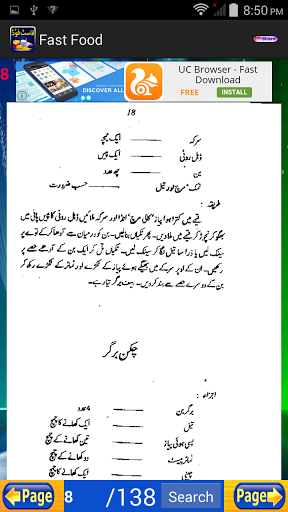 8:50 PM
فاسٹ فوڈ
Fast Food
Share
8
UC Browser - Fast Download
DISCOVER
FREE
INSTALL
18
سرکہ ایک چمچہ
ڈبل روٹی ایک پیس
بن چھ عدد
نمک مرچ اور تیل حسب ضرورت
طریقہ :
قیمے میں کترا ہوا پیاز کالی مرچ انڈا اور سرکہ ملائیں ڈبل روٹی کا پیس پانی میں
بھگو کر نچوڑ کر قیمے میں ملا دیں۔ پھر ٹکیاں بنا لیں۔ بن کو درمیان سے کو توے پر
سینک لیں یا ذرا سا تیل لگا کر سینک لیں۔ ٹکیاں تل کر ایک بن کے آدھے حصے پر
رکھیں۔ ان کے اوپر سرکے میں بھیگے ہوئے پیاز کے ٹکڑے اور ٹماٹر کے ٹکڑے رکھ کر
بن کے دوسرے حصے سے بند کر دیں۔ بیف برگر تیار ہے۔
چکن برگر
اجزاء :
برگر بن 4 عدد
تیل ایک کھانے کا چمچ
پسی ہوئی پیاز تین کھانے کے چمچ
ٹماٹر پیسٹ دو کھانے کے چمچ
چینی ایک کھانے کا چمچ
Page
8
/138
Search
Page